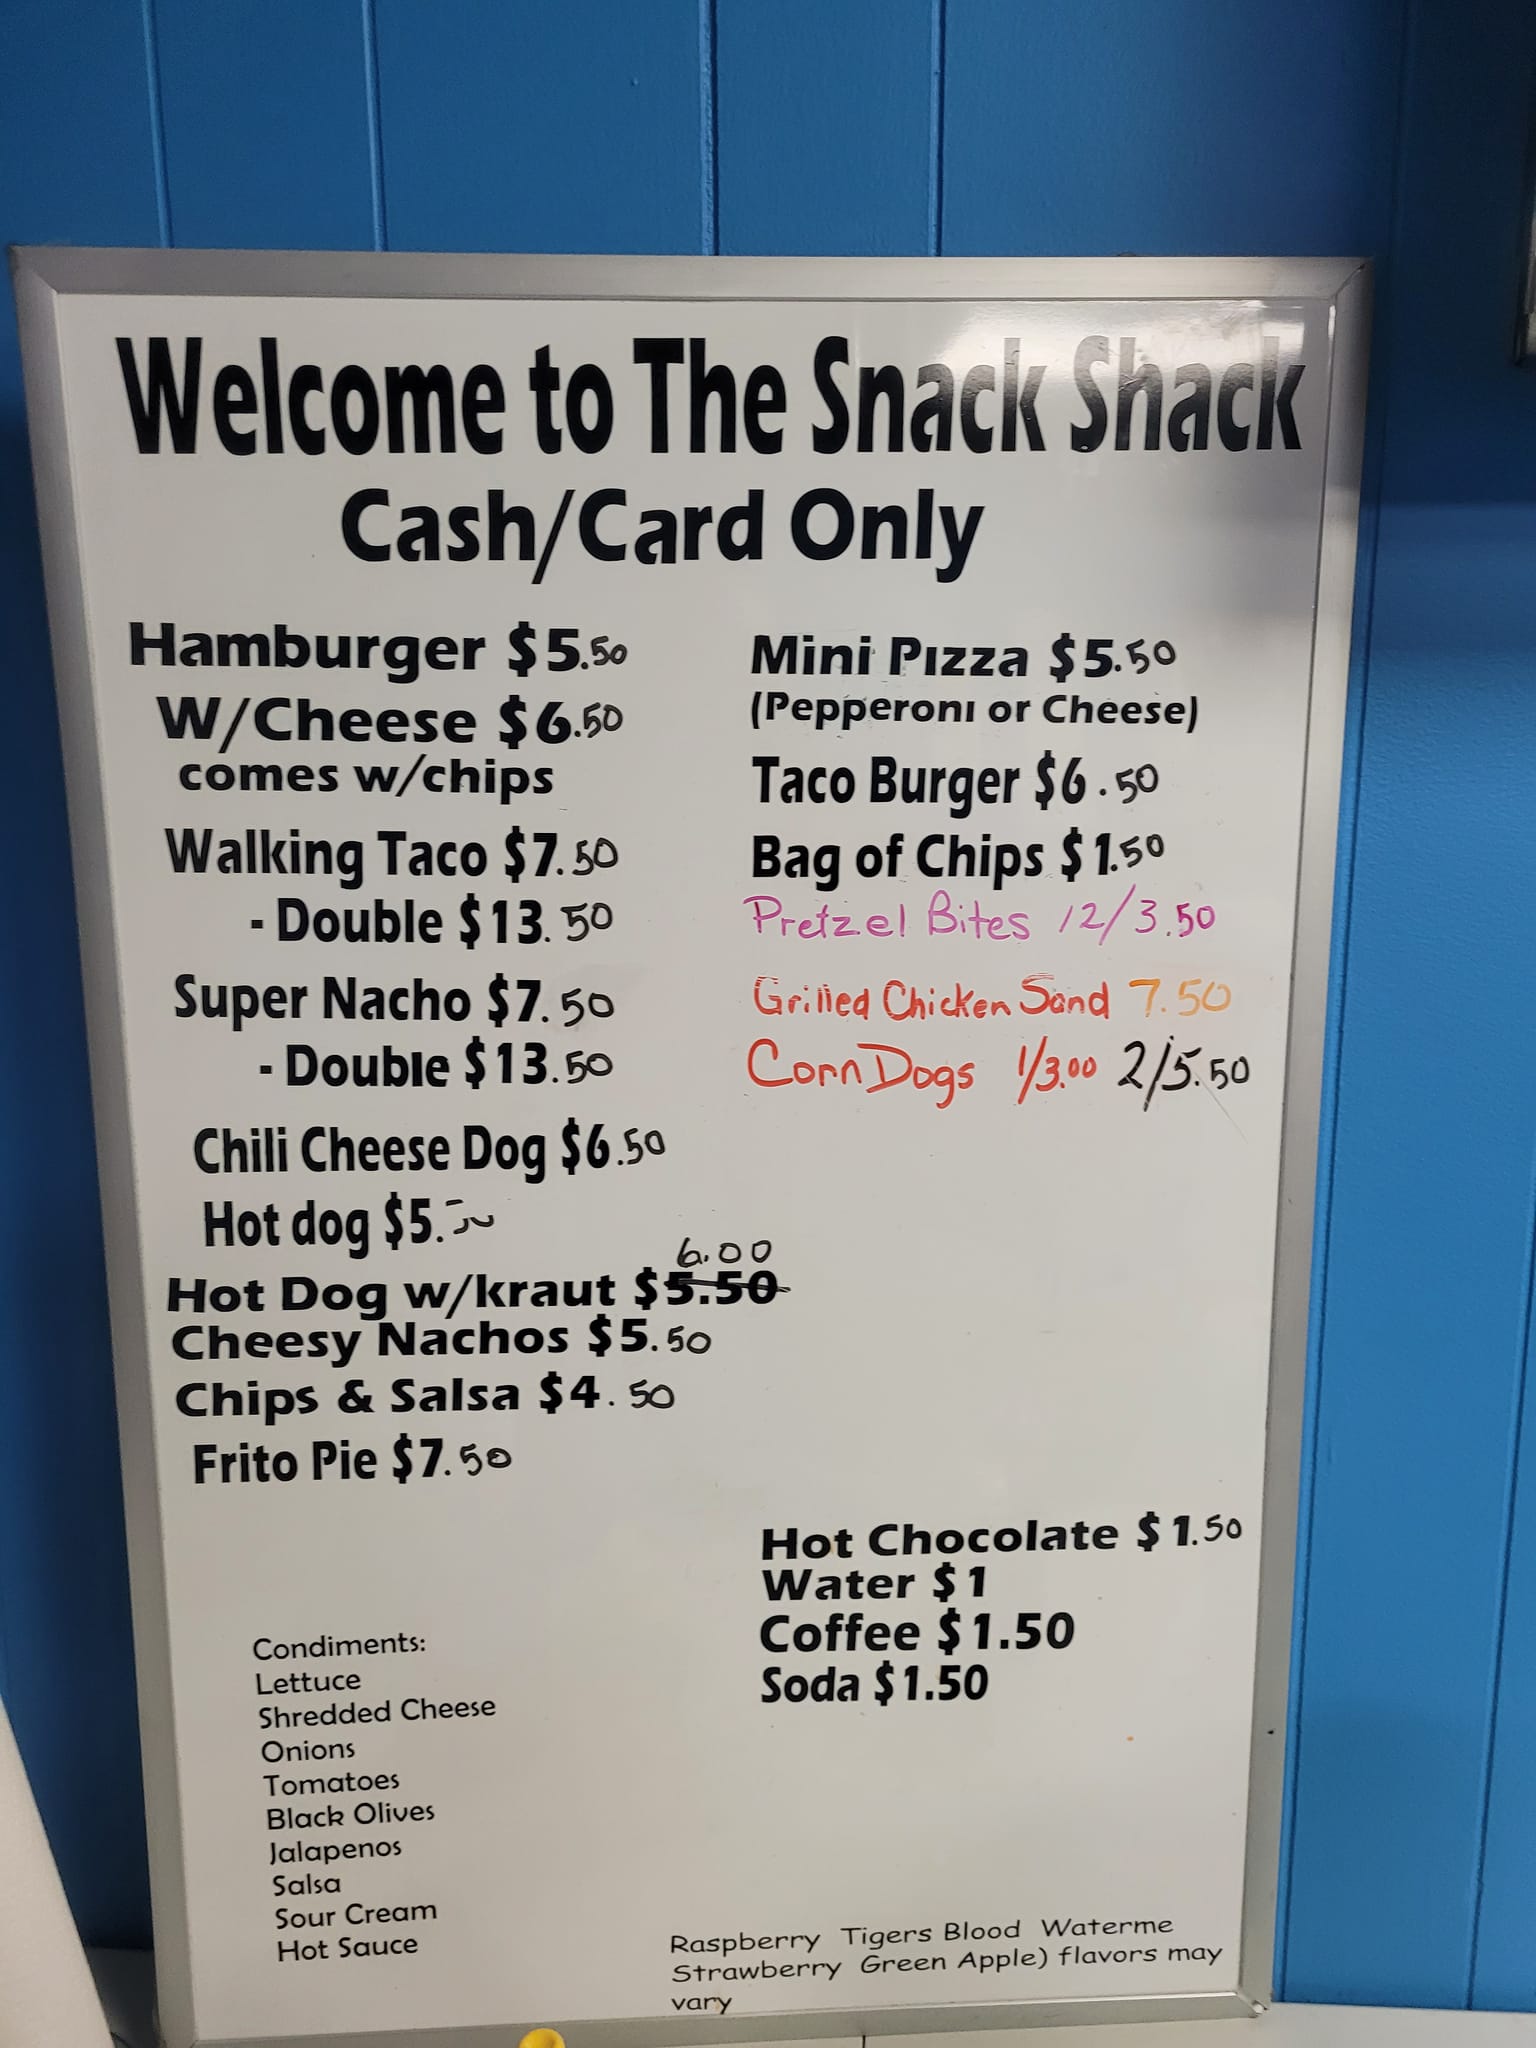 Welcome to The Snack Shack
Cash/Card Only
Hamburger $5.50
W/Cheese $6.50
comes w/chips
Walking Taco $7.50
- Double $13.50
Super Nacho $7.50
- Double $13.50
Chili Cheese Dog $6.50
Hot dog $5.50
6.00
Hot Dog w/kraut $5.50
Cheesy Nachos $5.50
Chips & Salsa $4.50
Frito Pie $7.50
Mini Pizza $5.50
(Pepperoni or Cheese)
Taco Burger $6.50
Bag of Chips $1.50
Pretzel Bites 12/3.50
Grilled Chicken Sand 7.50
Corn Dogs 1/3.00 2/5.50
Hot Chocolate $1.50
Water $1
Coffee $1.50
Soda $1.50
Condiments:
Lettuce
Shredded Cheese
Onions
Tomatoes
Black Olives
Jalapenos
Salsa
Sour Cream
Hot Sauce
Raspberry Tigers Blood Waterme
Strawberry Green Apple) flavors may
vary